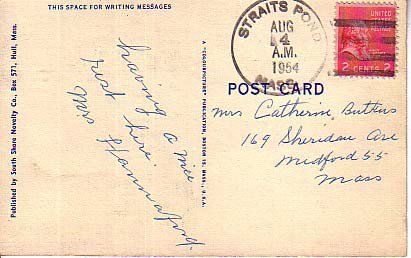 THIS SPACE FOR WRITING MESSAGES
Published by South Shore Novelty Co., Box 571, Hull, Mass.
having a nice
rest here.
Mrs
A "COLOURPICTURE" PUBLICATION, BOSTON 15, MASS., U.S.A.
STRAITS POND
AUG
4
A.M.
1954
MASS.
UNITED STATES
2 CENTS 2
POST CARD
Mrs Catherine Buttins
169 Sheridan Ave
Medford 55
Mass